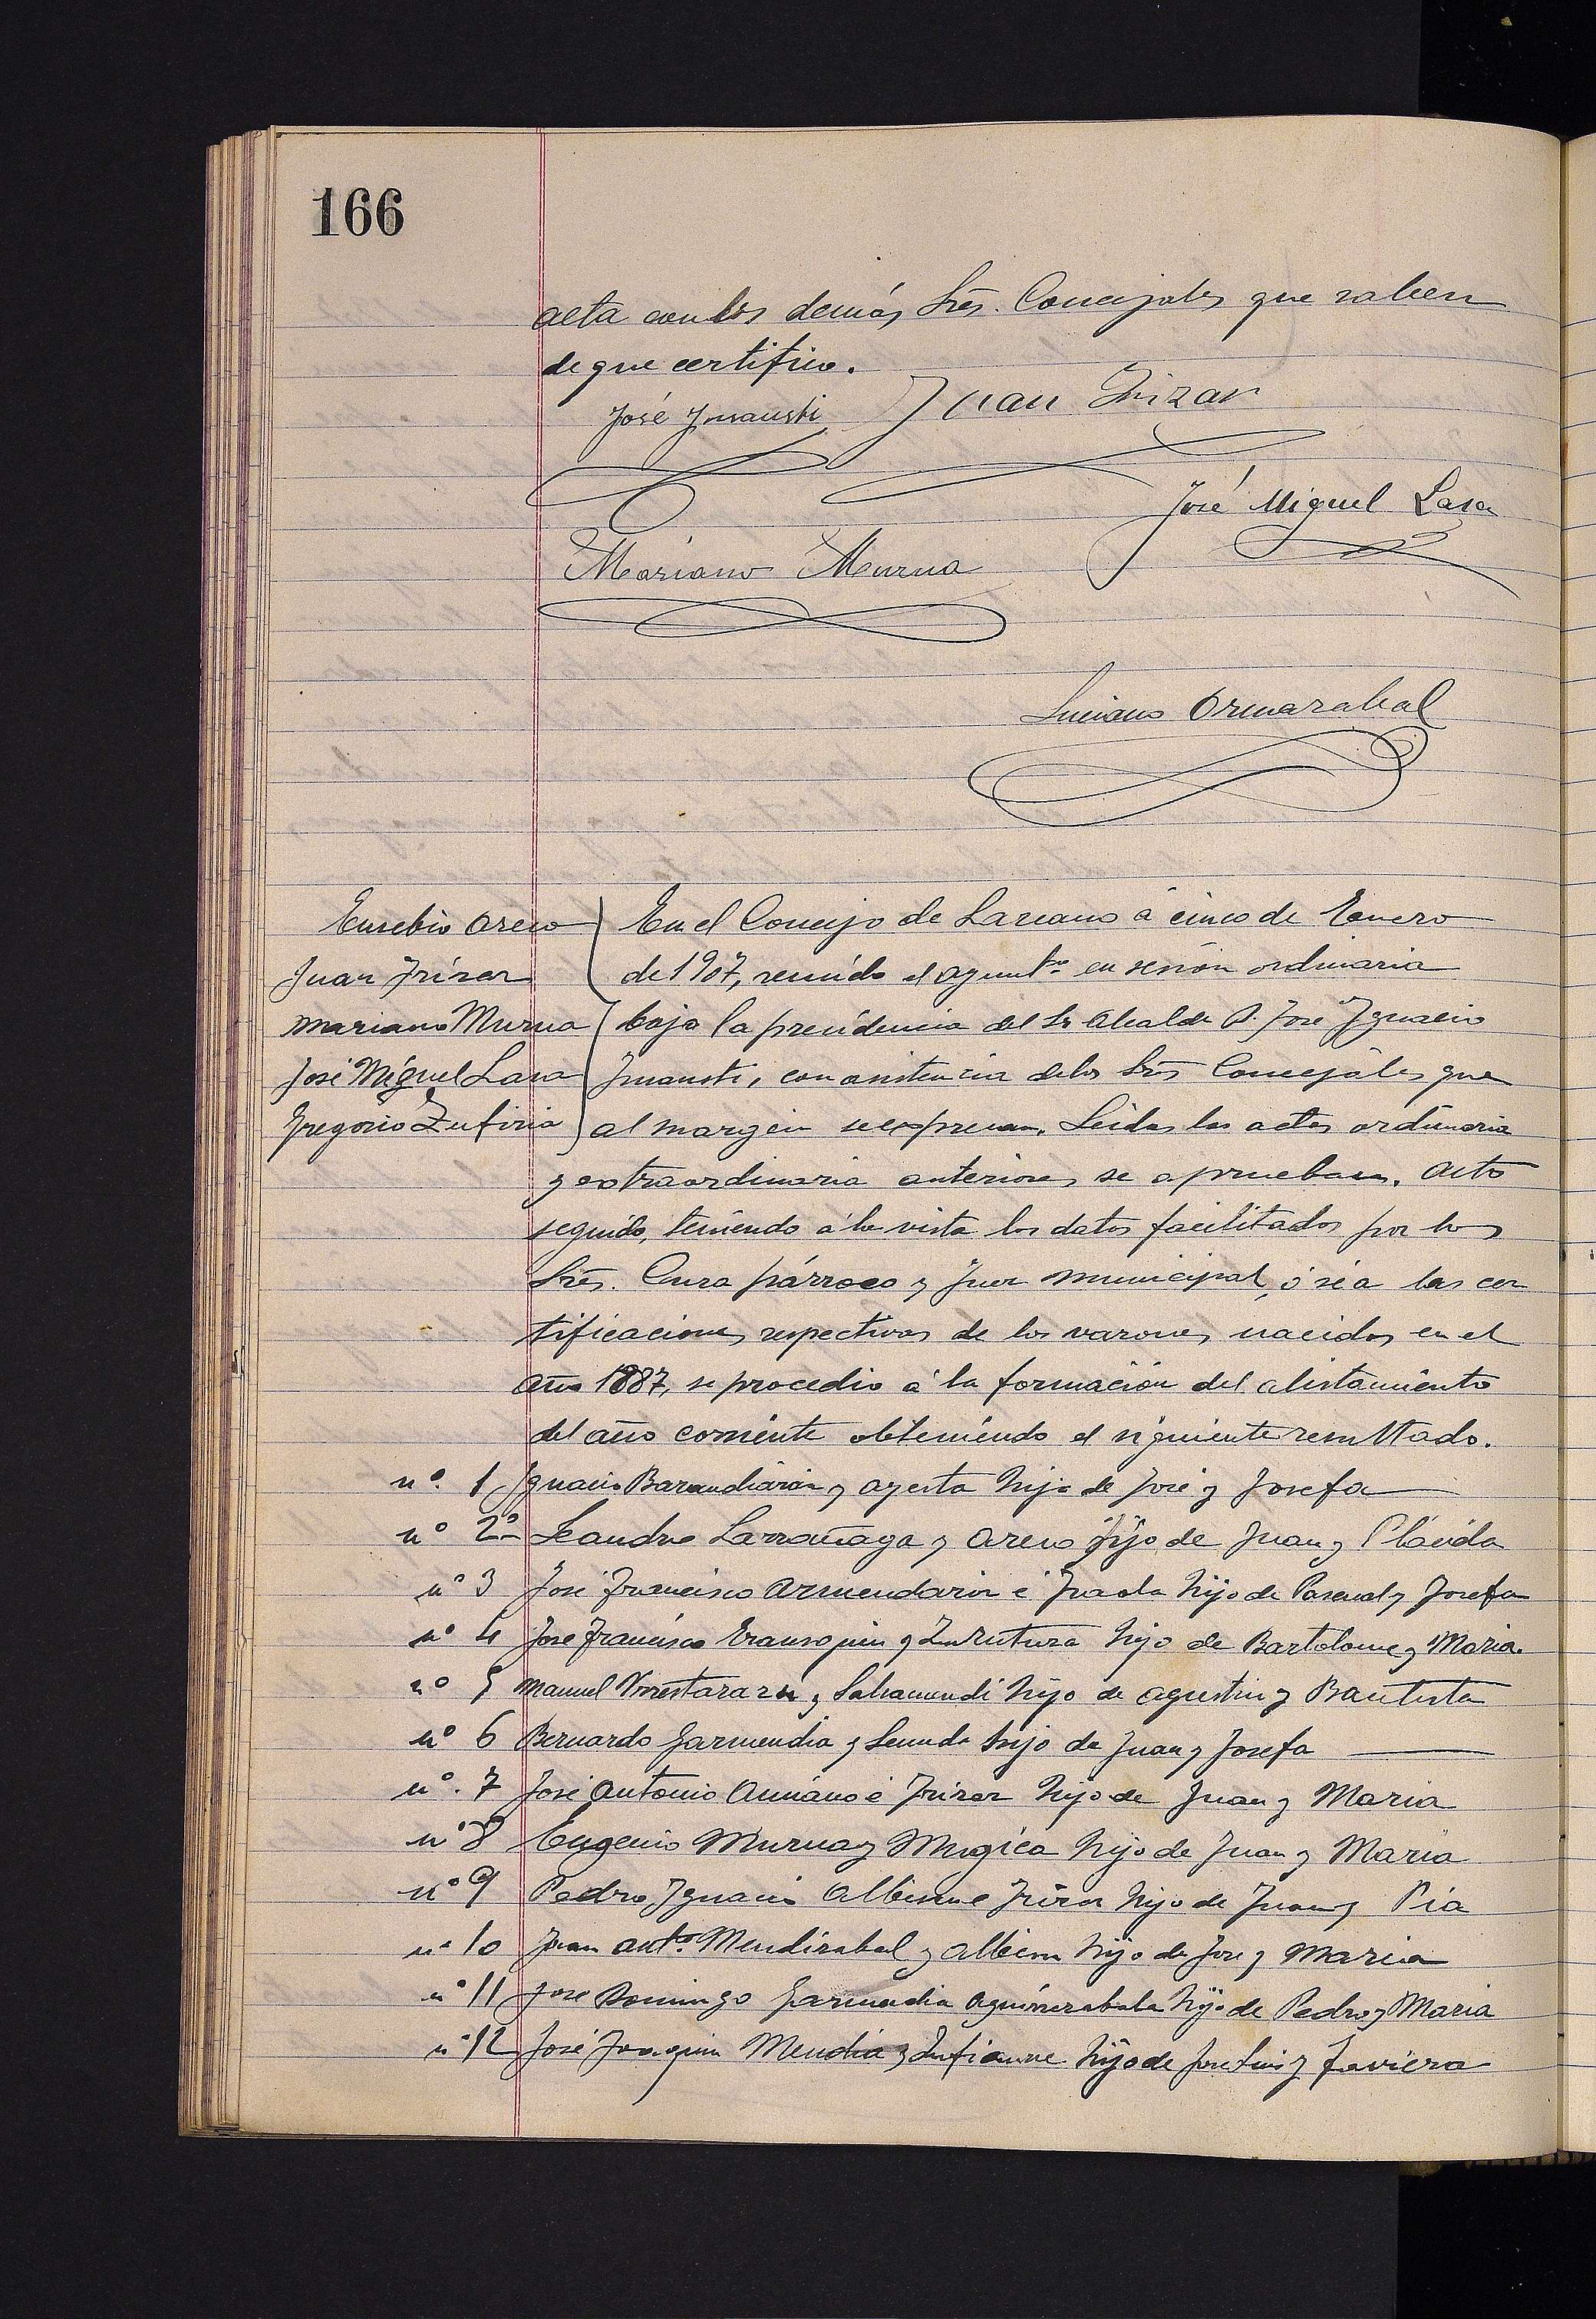 166
acta con los demás Sres. Concejales que saben
de que certifico.
José Ynsausti Juan Irizar
José Miguel Lasa
Mariano Murua
Luciano Ormazabal
Eusebio Oreco
Juan Irizar
Mariano Murua
José Miguel Lasa
Gregorio Zufiria
En el Concejo de Lazcano á cinco de Enero
de 1907, reunido el ayuntº en sesión ordinaria
bajo la presidencia del Sr Alcalde D. José Ygnacio
Ynsausti, con asistencia de los Sres Concejales que
al margen se expresan. Leidas las actas ordinaria
y extraordinaria anteriores se aprueban. Acto
seguido, teniendo á la vista los datos facilitados por los
Sres. Cura párroco y Juez municipal, ó sea las cer
tificaciones respectivas de los varones nacidos en el
año 1887, se procedio á la formación del alistamiento
del año corriente obteniendo el siguiente resultado.
nº. 1 Ygnacio Barandiarán y Ayesta hijo de José y Josefa
nº 2º Leandro Larrañaga y Oreco hijo de Juan y Plácida
nº 3 José Francisco Armendariz é hijo de Pascual y Josefa
nº 4 José Francisco Erausquin y Zurutuza hijo de Bartolome y Maria.
nº 5 Manuel Urrestarazu y Sahamendi hijo de Agustin y Bautista
nº 6 Bernardo Garmendia y hijo de Juan y Josefa
nº. 7 José Antonio é Irizar hijo de Juan y Maria
nº 8 Eugenio Murua y Mugica hijo de Juan y Maria
nº 9 Pedro Ygnacio Albisu é Irizar hijo de Juan y Pia
nº 10 Juan Antº. Mendizabal y Albisu hijo de José y Maria
nº 11 José Domingo Garmendia Aguirrezabala hijo de Pedro y Maria
nº 12 José Joaquin Mendia y hijo de José Luis y Javiera